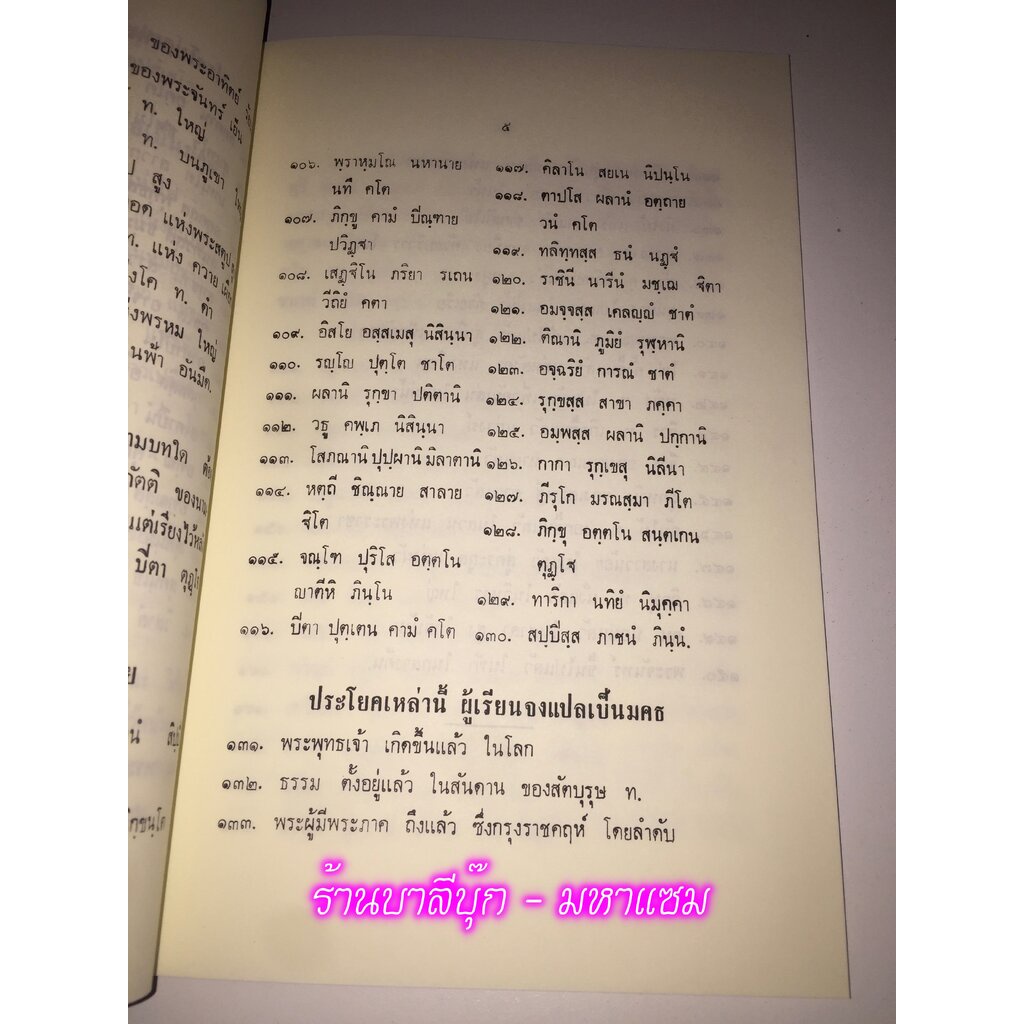 ของพระอาทิตย์
ของพระจันทร์ เย็น
ท. ใหญ่
ท. บนภูเขา
สูง
แห่งพระสตูป
ท. แห่ง ควาย
โค ท. ดำ
พรหม ใหญ่
อันมืด.
ามบทใด ต้อง
ของนาม
แต่เรียงไว้
บีตา ตุฏฺโ
๕
๑๐๖. พฺราหฺมโณ นหานาย
นทึ คโต
๑๐๗. ภิกฺขู คามํ ปิณฺฑาย
ปวิฏฺฐา
๑๐๘. เสฏฺฐิโน ภริยา รเถน
วีถิยํ คตา
๑๐๙. อิสโย อสฺสเมสุ นิสินฺนา
๑๑๐. รญฺโญ ปุตฺโต ชาโต
๑๑๑. ผลานิ รุกฺขา ปติตานิ
๑๑๒. วธู คพฺเภ นิสินฺนา
๑๑๓. โสภณานิ ปุปฺผานิ มิลาตานิ
๑๑๔. หตฺถี ชิณฺณาย สาลาย
ฐิโต
๑๑๕. จณฺโฑ ปุริโส อตฺตโน
ญาตีหิ ภินฺโน
๑๑๖. ปิตา ปุตฺเตน คามํ คโต
๑๑๗. คิลาโน สยเน นิปนฺโน
๑๑๘. ตาปโส ผลานํ อตฺถาย
วนํ คโต
๑๑๙. ทลิทฺทสฺส ธนํ นฏฺฐํ
๑๒๐. ราชินี นารีนํ มชฺเฌ ฐิตา
๑๒๑. อมจฺจสฺส เคลญฺญํ ชาตํ
๑๒๒. ติณานิ ภูมิยํ รุฬฺหานิ
๑๒๓. อจฺฉริยํ การณํ ชาตํ
๑๒๔. รุกฺขสฺส สาขา ภคฺคา
๑๒๕. อมฺพสฺส ผลานิ ปกฺกานิ
๑๒๖. กากา รุกฺเขสุ นิลีนา
๑๒๗. ภีรุโก มรณสฺมา ภีโต
๑๒๘. ภิกฺขุ อตฺตโน สนฺตเกน
ตุฏฺโฐ
๑๒๙. ทาริกา นทิยํ นิมุคฺคา
๑๓๐. สปฺปิสฺส ภาชนํ ภินฺนํ.
ประโยคเหล่านี้ ผู้เรียนจงแปลเป็นมคธ
๑๓๑. พระพุทธเจ้า เกิดขึ้นแล้ว ในโลก
๑๓๒. ธรรม ตั้งอยู่แล้ว ในสันดาน ของสัตบุรุษ ท.
๑๓๓. พระผู้มีพระภาค ถึงแล้ว ซึ่งกรุงราชคฤห์ โดยลำดับ
ร้านบาลีบุ๊ก - มหาแซม